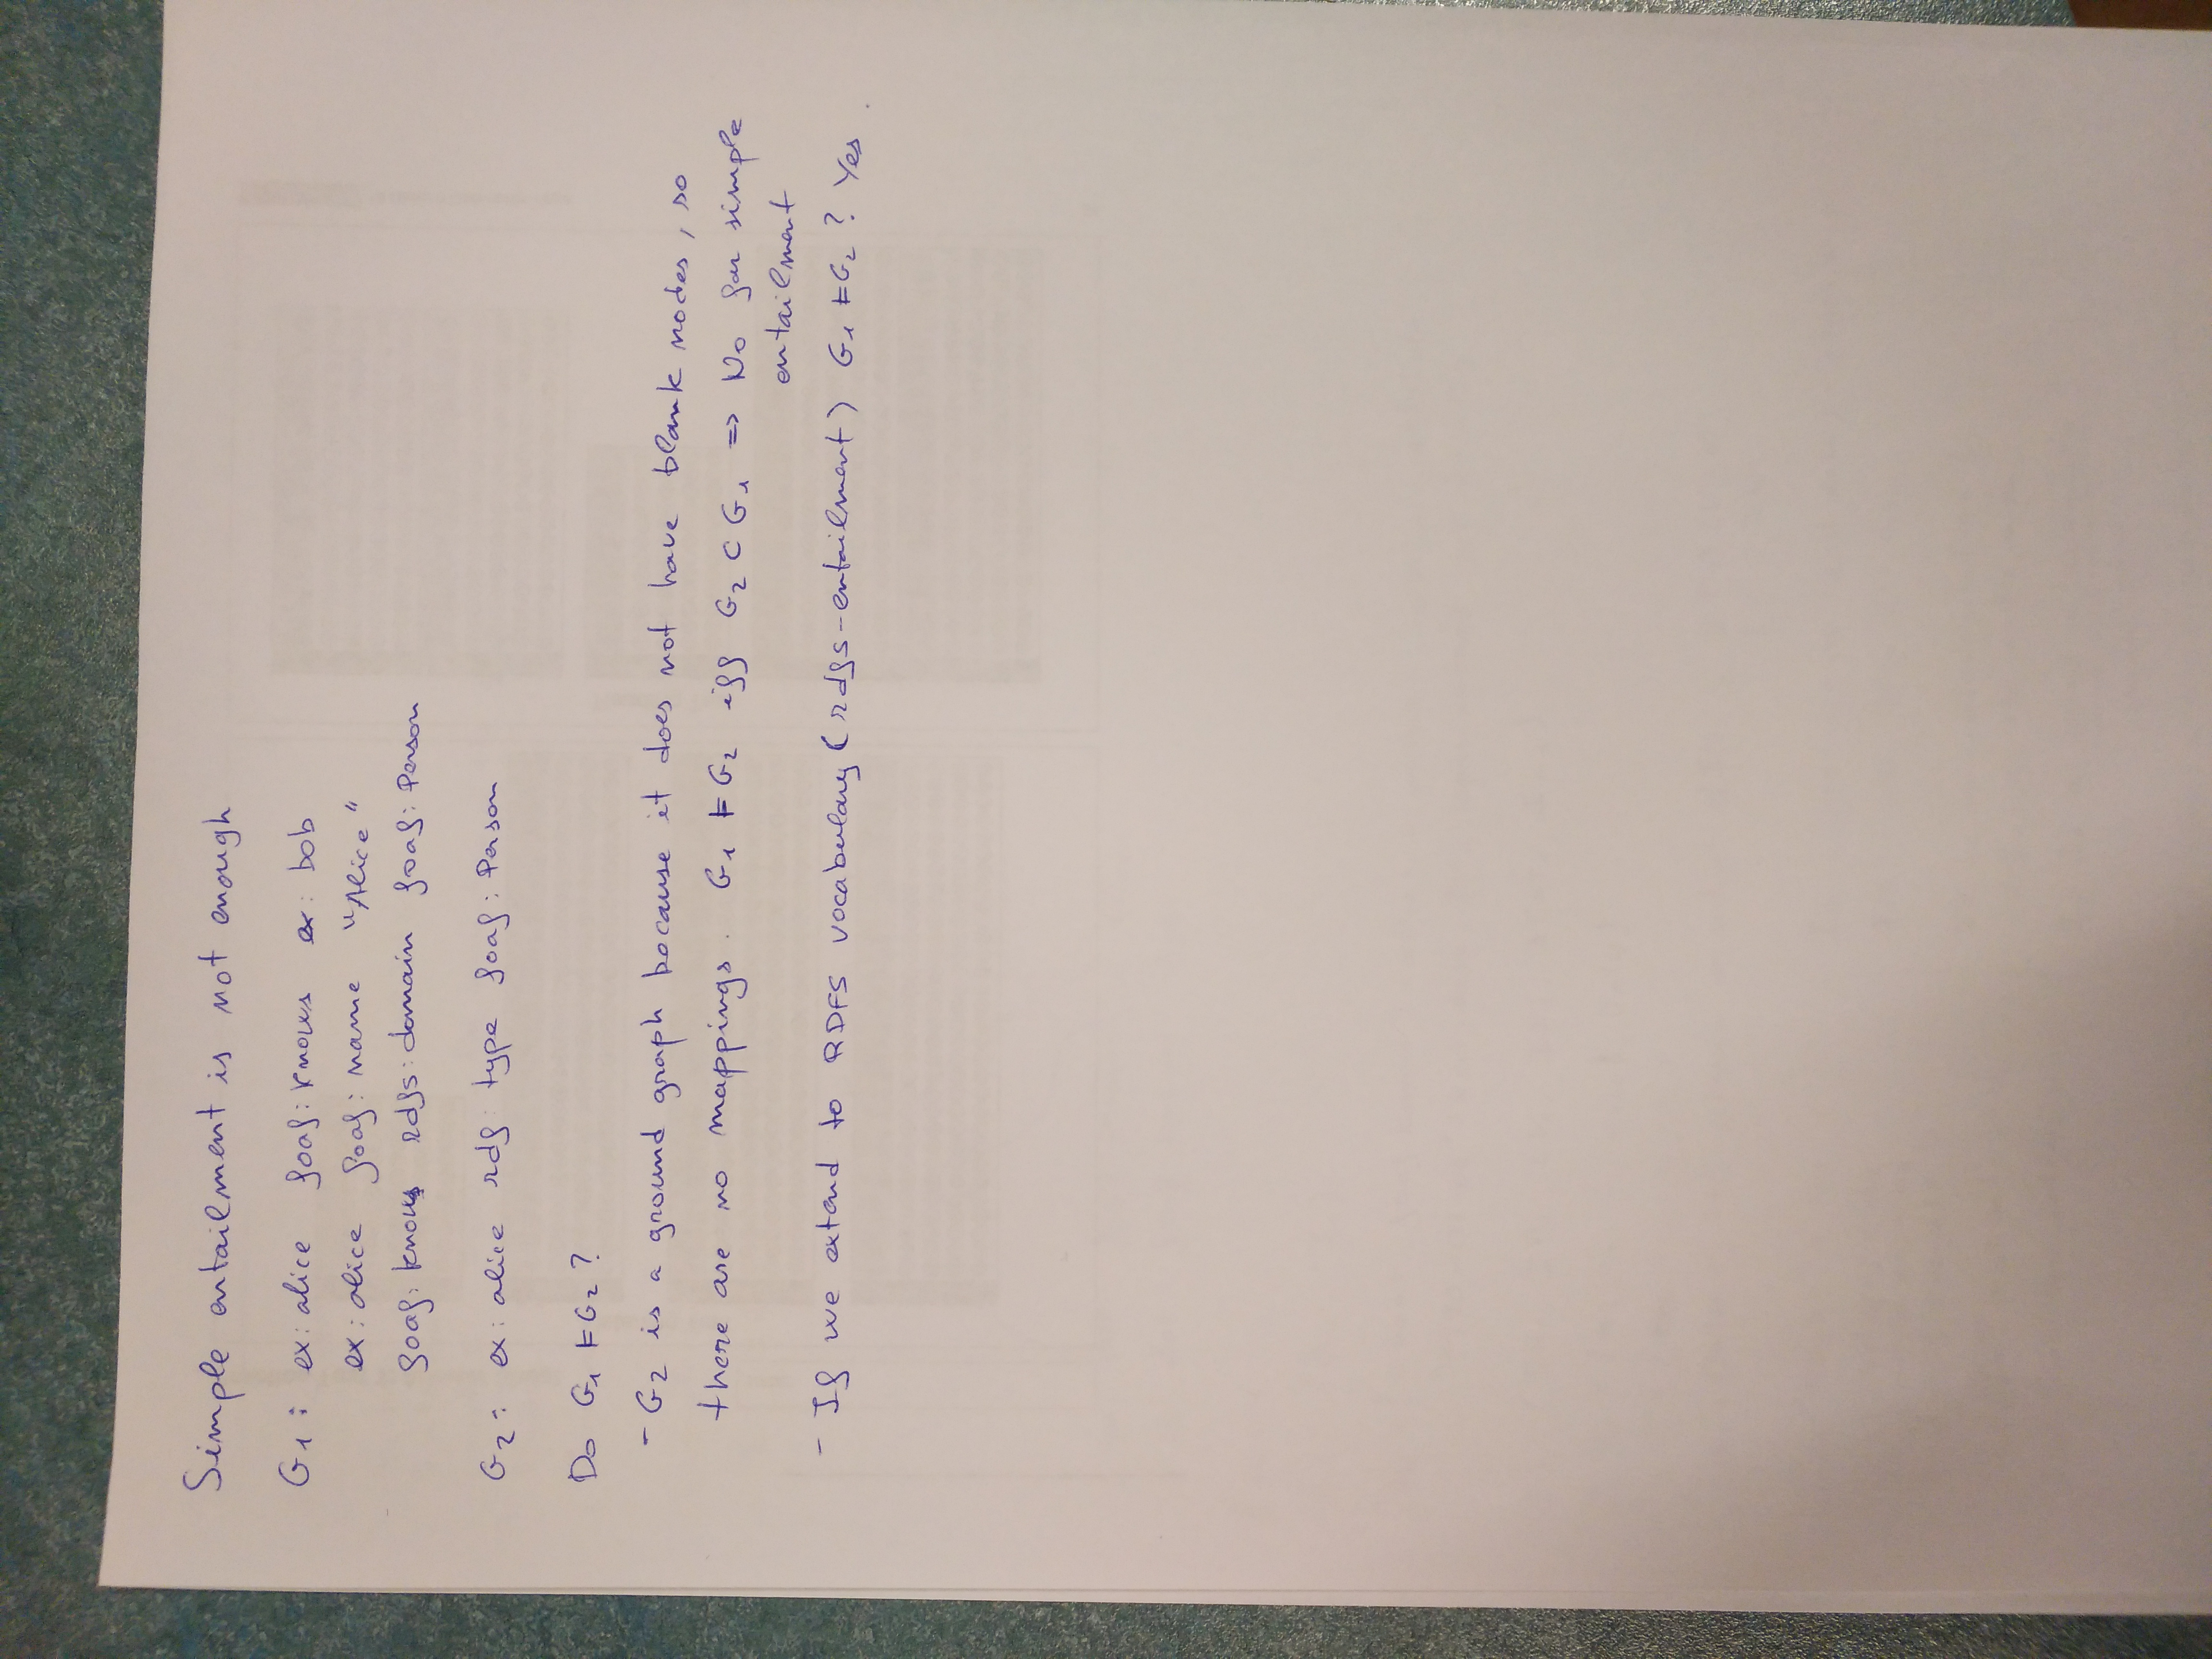 Simple entailment is not enough
G1: ex:alice foaf:knows ex:bob
ex:alice foaf:name "Alice"
foaf:knows rdfs:domain foaf:Person
G2: ex:alice rdf:type foaf:Person
Do G1 ⊨ G2?
- G2 is a ground graph because it does not have blank nodes, so
there are no mappings. G1 ⊨ G2 iff G2 ⊂ G1 ⇒ No for simple
entailment
- If we extend to RDFS vocabulary (rdfs-entailment) G1 ⊨ G2? Yes.